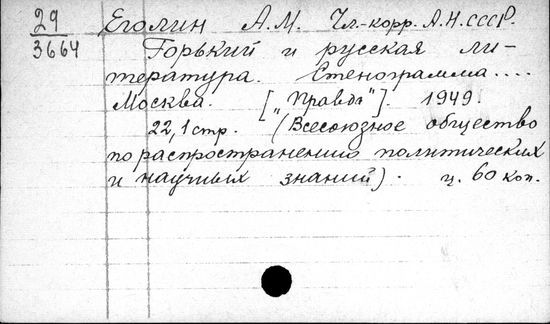 29
3664
Еголин А.М. Чл.-корр. А.Н.СССР.
Горький и русская ли-
тература. Стенограмма....
Москва. [„Правда"]. 1949.
22,1 стр. (Всесоюзное общество
по распространению политических
и научных знаний). ц. 60 коп.